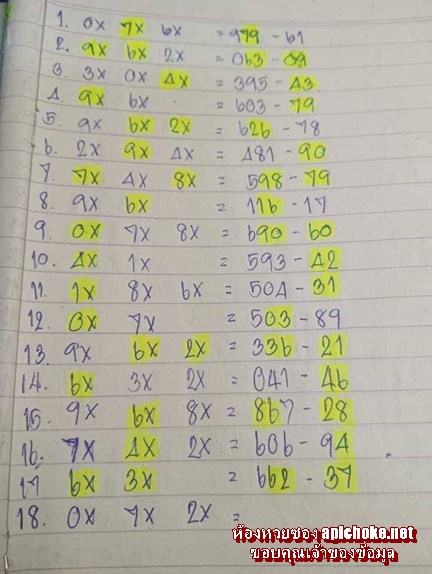 1. 0x 7x 6x = 979 - 61
2. 9x 6x 2x = 063 - 09
3. 3x 0x 4x = 395 - 43
4. 9x 6x = 603 - 79
5. 9x 6x 2x = 626 - 78
6. 2x 9x 4x = 481 - 90
7. 7x 4x 8x = 598 - 79
8. 9x 6x = 116 - 17
9. 0x 7x 8x = 690 - 60
10. 4x 1x = 593 - 42
11. 1x 8x 6x = 504 - 31
12. 0x 7x = 503 - 89
13. 9x 6x 2x = 336 - 21
14. 6x 3x 2x = 041 - 46
15. 9x 6x 8x = 867 - 28
16. 7x 4x 2x = 606 - 94
17 6x 3x = 662 - 37
18. 0x 7x 2x =
ห้องหวยซอง apichoke.net
ขอบคุณเจ้าของข้อมูล